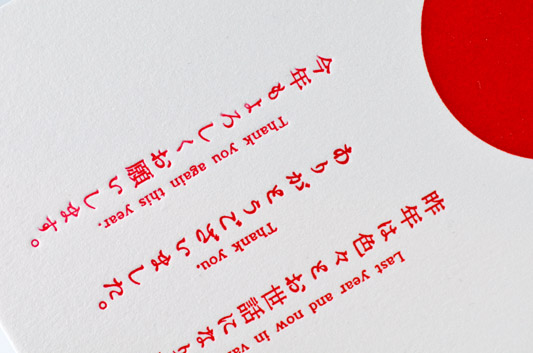 昨年は色々とお世話になり
Last year and now in
ありがとうございました。
Thank you.
今年もよろしくお願いします。
Thank you again this year.